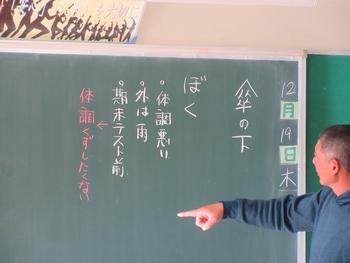 12月19日木
傘の下
ぼく
・体調悪い
・外は雨
・期末テスト前
←
体調くずしたくない